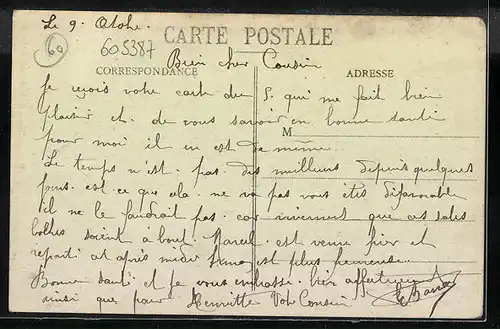 Le 9. Octobre.
CARTE POSTALE
60
605387
Bien cher Cousin
CORRESPONDANCE
ADRESSE
Je reçois votre carte du 5. qui me fait bien
plaisir et de vous savoir en bonne santé
M
pour moi il en est de même..
Le temps n'est pas des meilleurs depuis quelques
jours. est ce que cela ne va pas vous être défavorable
il ne le faudrait pas car vivement que ces sales
boches soient à bout. Marcel est venu hier et
reparti cet après midi est plus
Bonne santé et je vous embrasse bien affectueusement
ainsi que pour Henriette Votre Cousin